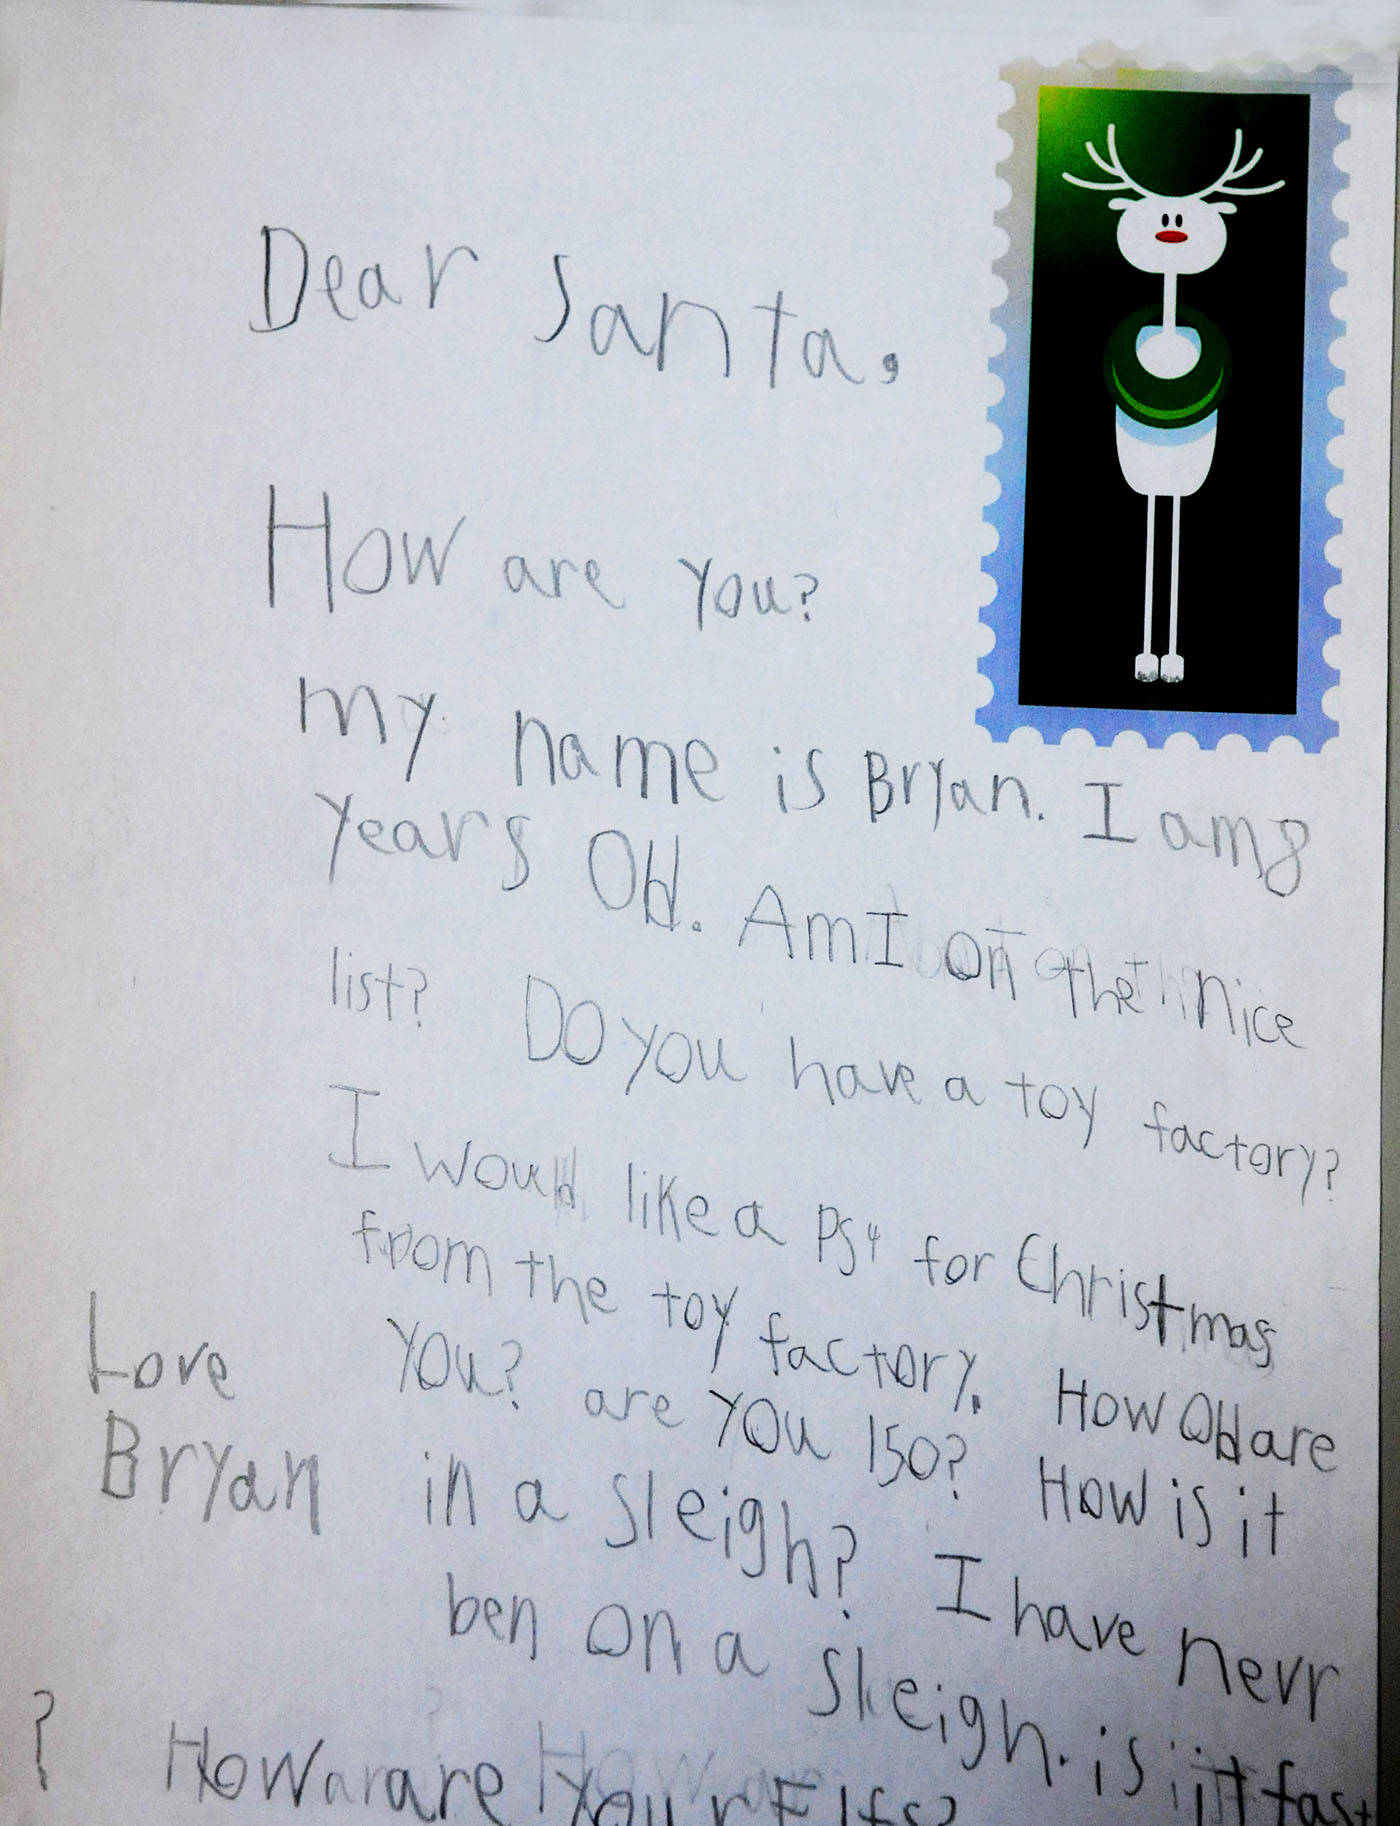 Dear Santa,
How are you?
my name is Bryan. I am 8
years Old. Am I on the nice
list? Do you have a toy factory?
I would like a PS4 for Christmas
from the toy factory. How Old are
you? are you 150? How is it
in a sleigh? I have nevr
ben on a sleigh. is it fast
? How are your Elfs?
Love
Bryan